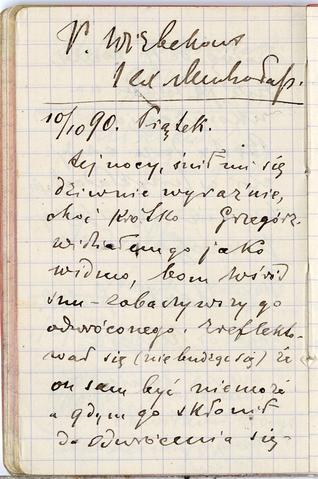 V. Wiekehous
10/10 90. Piątek.
tej nocy, śnił mi się
dziwnie wyraźnie,
choć krótko Grzegórz.
widziałem go jako
widmo, bom wśród
snu - zobaczywszy go
odwróconego, zreflekto-
wał się (nie budząc się) że
on sam być niemoże
a gdym go skłonił
do odwrócenia się -